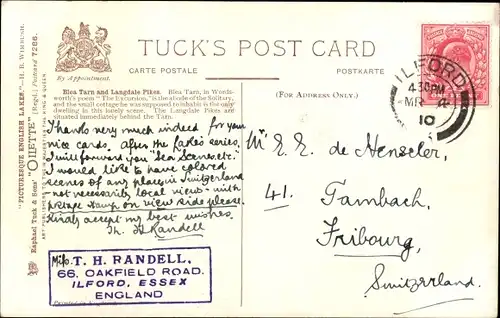 "PICTURESQUE ENGLISH LAKES."—H. B. WIMBUSH.
Raphael Tuck & Sons' "OILETTE" [Regd.] Postcard 7286.
By Appointment.
TUCK'S POST CARD
CARTE POSTALE
POSTKARTE
(FOR ADDRESS ONLY.)
Blea Tarn and Langdale Pikes. Blea Tarn, in Words-
worth's poem "The Excursion," is the abode of the Solitary,
and the small cottage he was supposed to inhabit is the only
dwelling in this lonely scene. The Langdale Pikes are
situated immediately behind the Tarn.
Thanks very much indeed for your
nice cards. After the Lakes series,
I will forward you Sea Scenes, etc.
I would like to have colored
scenes of any place in Switzerland
not necessarily local views - with
stamp on view side please.
Kindly accept my best wishes.
Th. H Randell
Miss T. H. RANDELL,
66, OAKFIELD ROAD.
ILFORD, ESSEX
ENGLAND
ILFORD
4.30PM
MR
10
E. E. de Henseler,
41. Fambach,
Fribourg,
Switzerland.